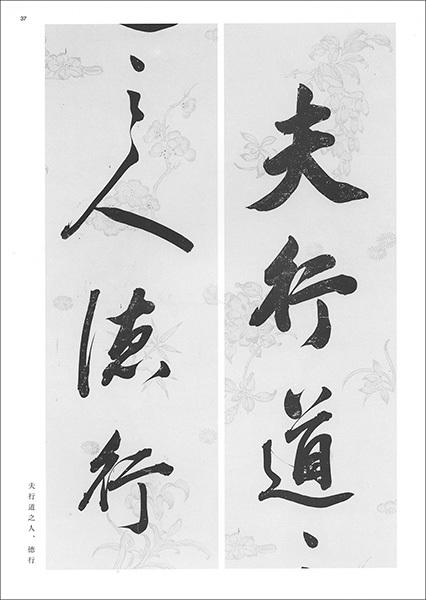 37
夫行道
之人徳行
夫行道之人、徳行